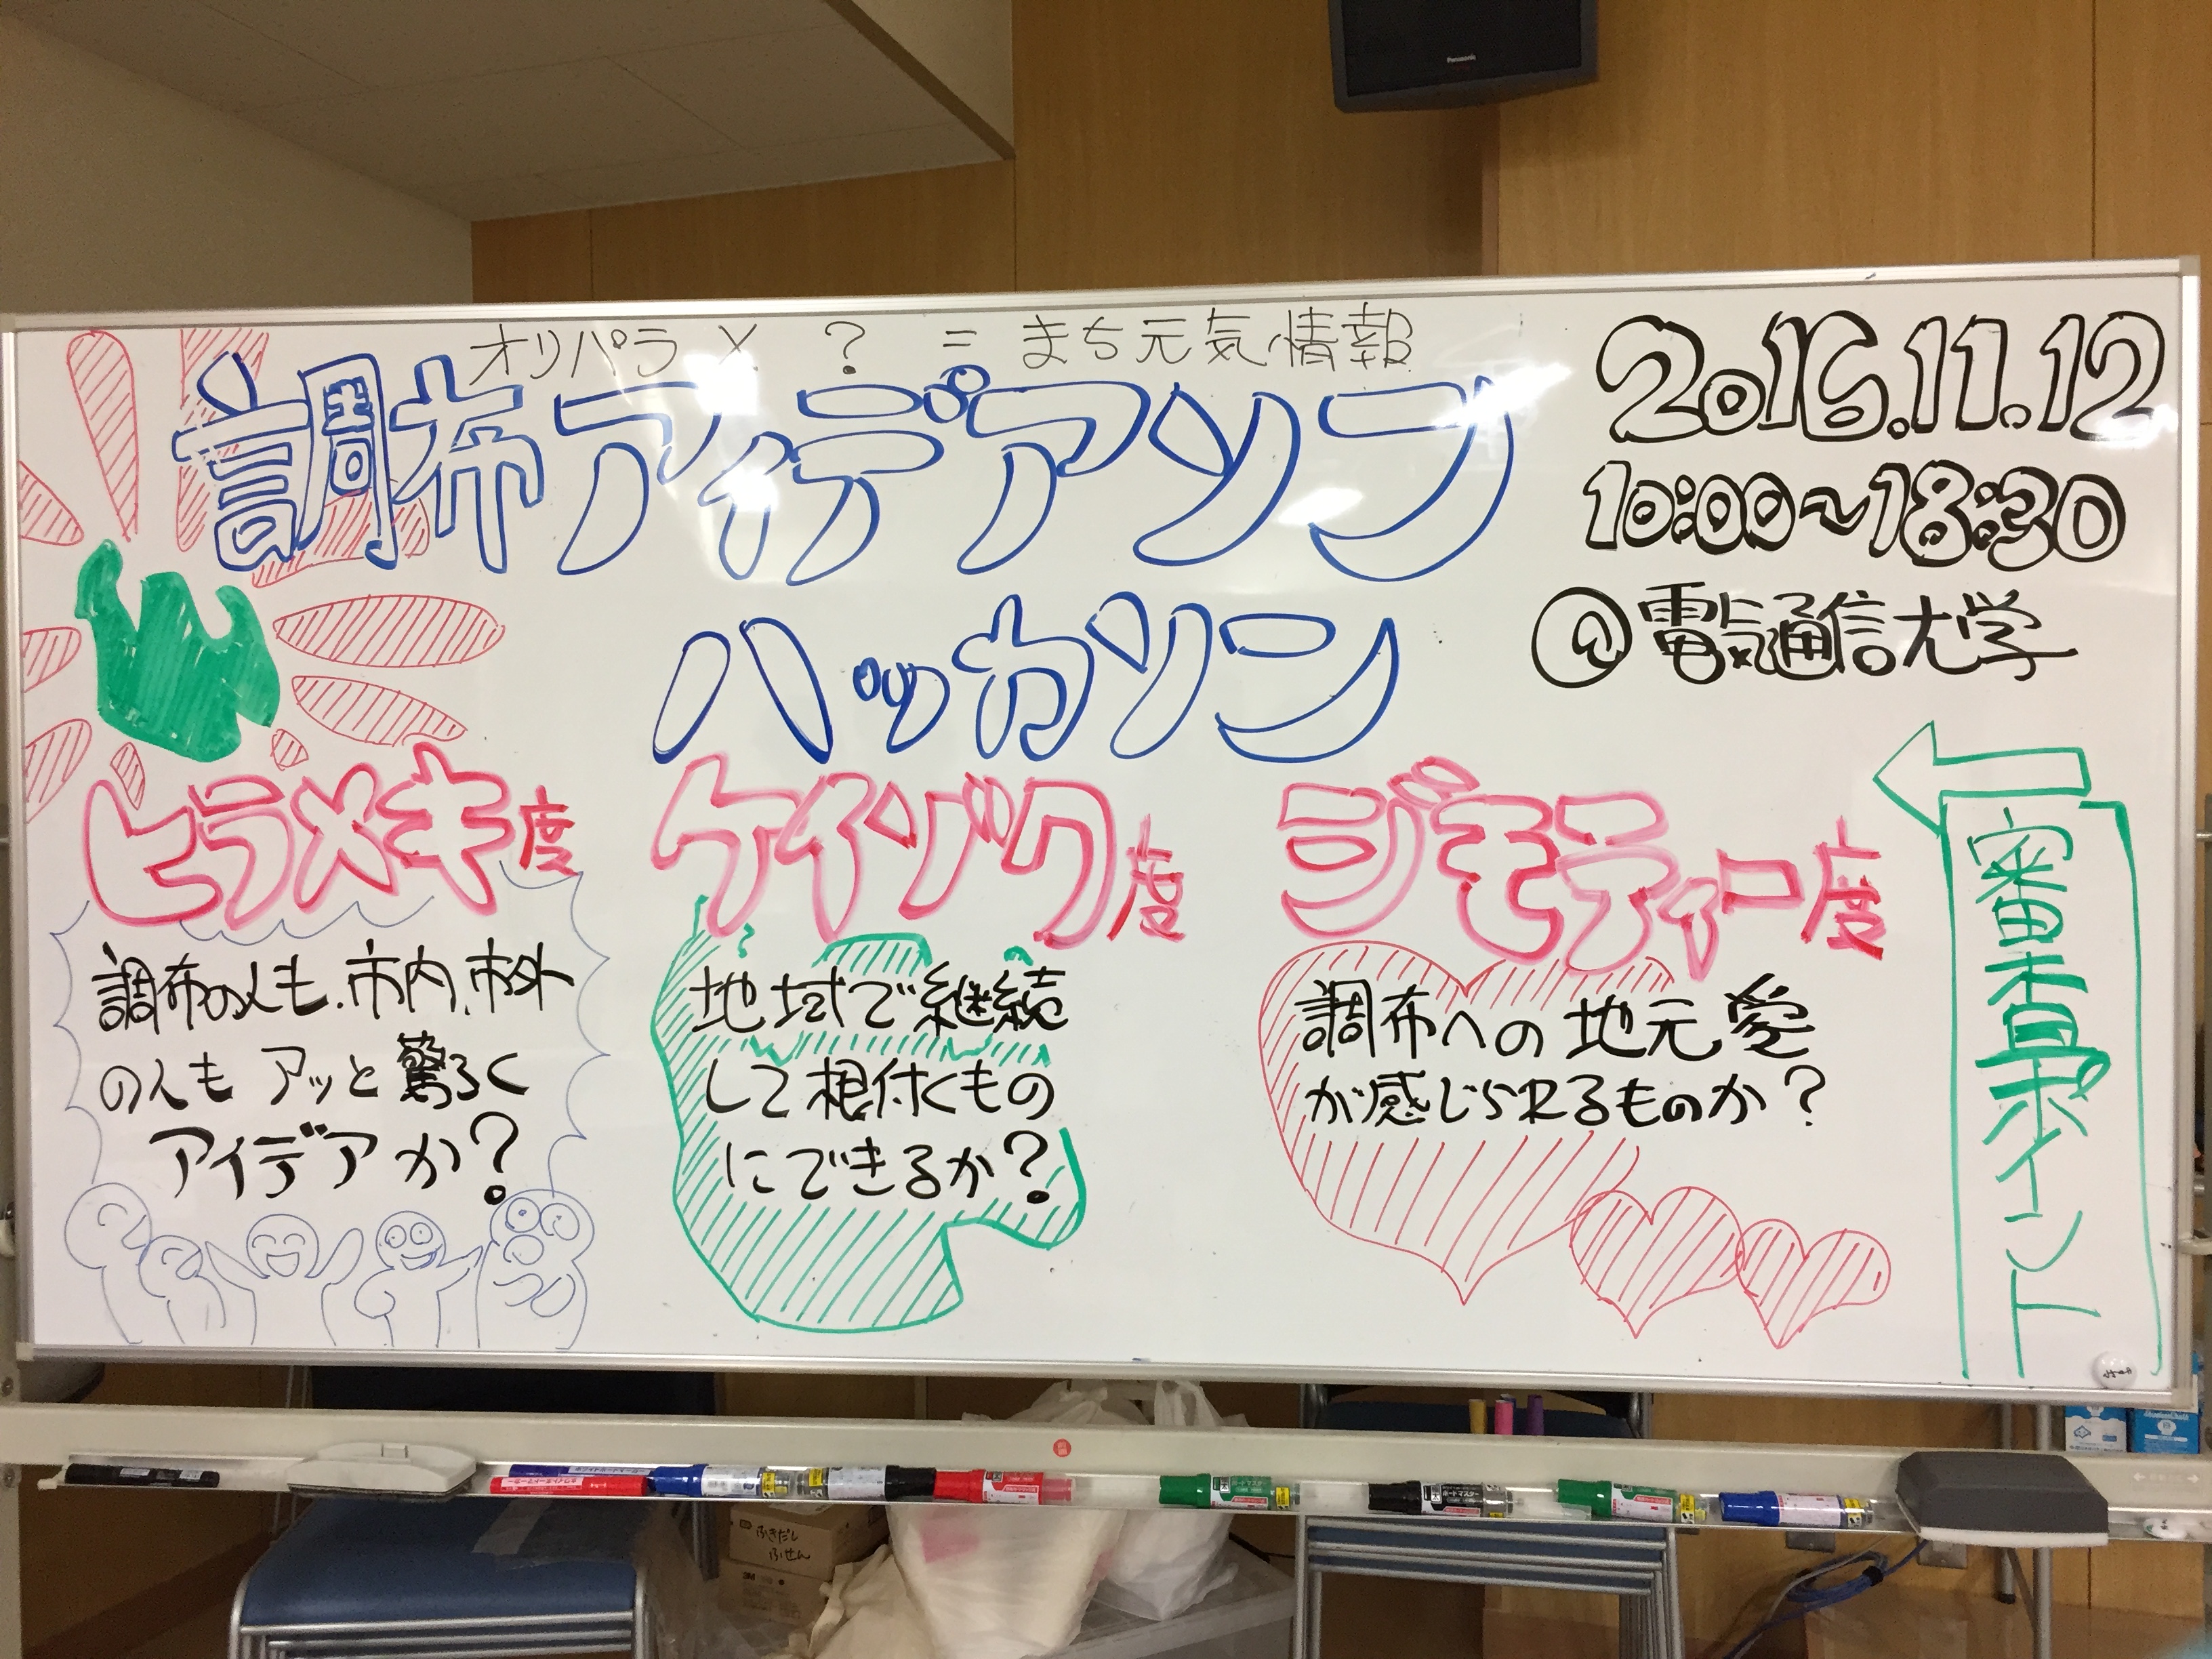 Panasonic
オリパラ × ? = まち元気情報
調布アイデアソン
ハッカソン
2016.11.12
10:00~18:30
@電気通信大学
審査ポイント
ヒラメキ度
調布の人も、市内、市外
の人も アッと驚ろく
アイデアか?
ケイゾク度
地域で継続
して根付くもの
にできるか?
ジモティー度
調布への地元愛
が感じられるものか?
ボードマスター
ふきだし
ふせん
3M